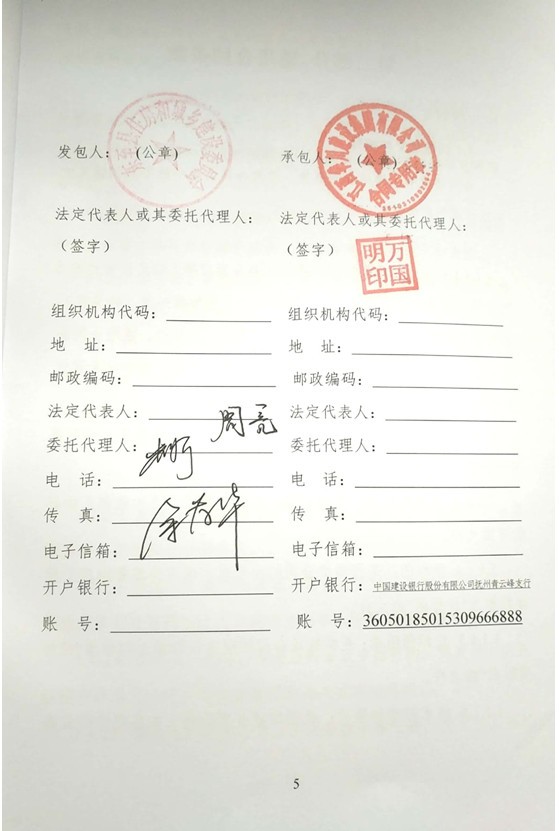 发包人： （公章）
法定代表人或其委托代理人：
（签字）
组织机构代码：
地 址：
邮政编码：
法定代表人：
委托代理人：
电 话：
传 真：
电子信箱：
开户银行：
账 号：
承包人： （公章）
合同专用章
法定代表人或其委托代理人：
（签字）
万国
明印
组织机构代码：
地 址：
邮政编码：
法定代表人：
委托代理人：
电 话：
传 真：
电子信箱：
开户银行：中国建设银行股份有限公司抚州青云峰支行
账 号：36050185015309666888
5